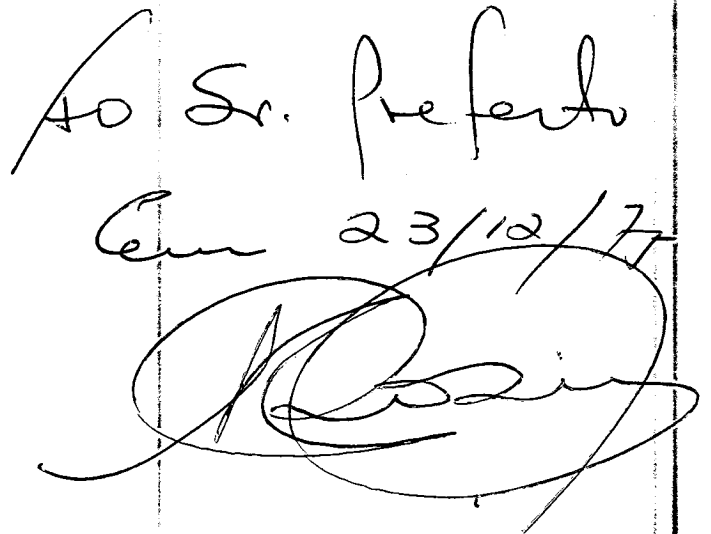 Ao Sr. Prefeito
Em 23/12/77